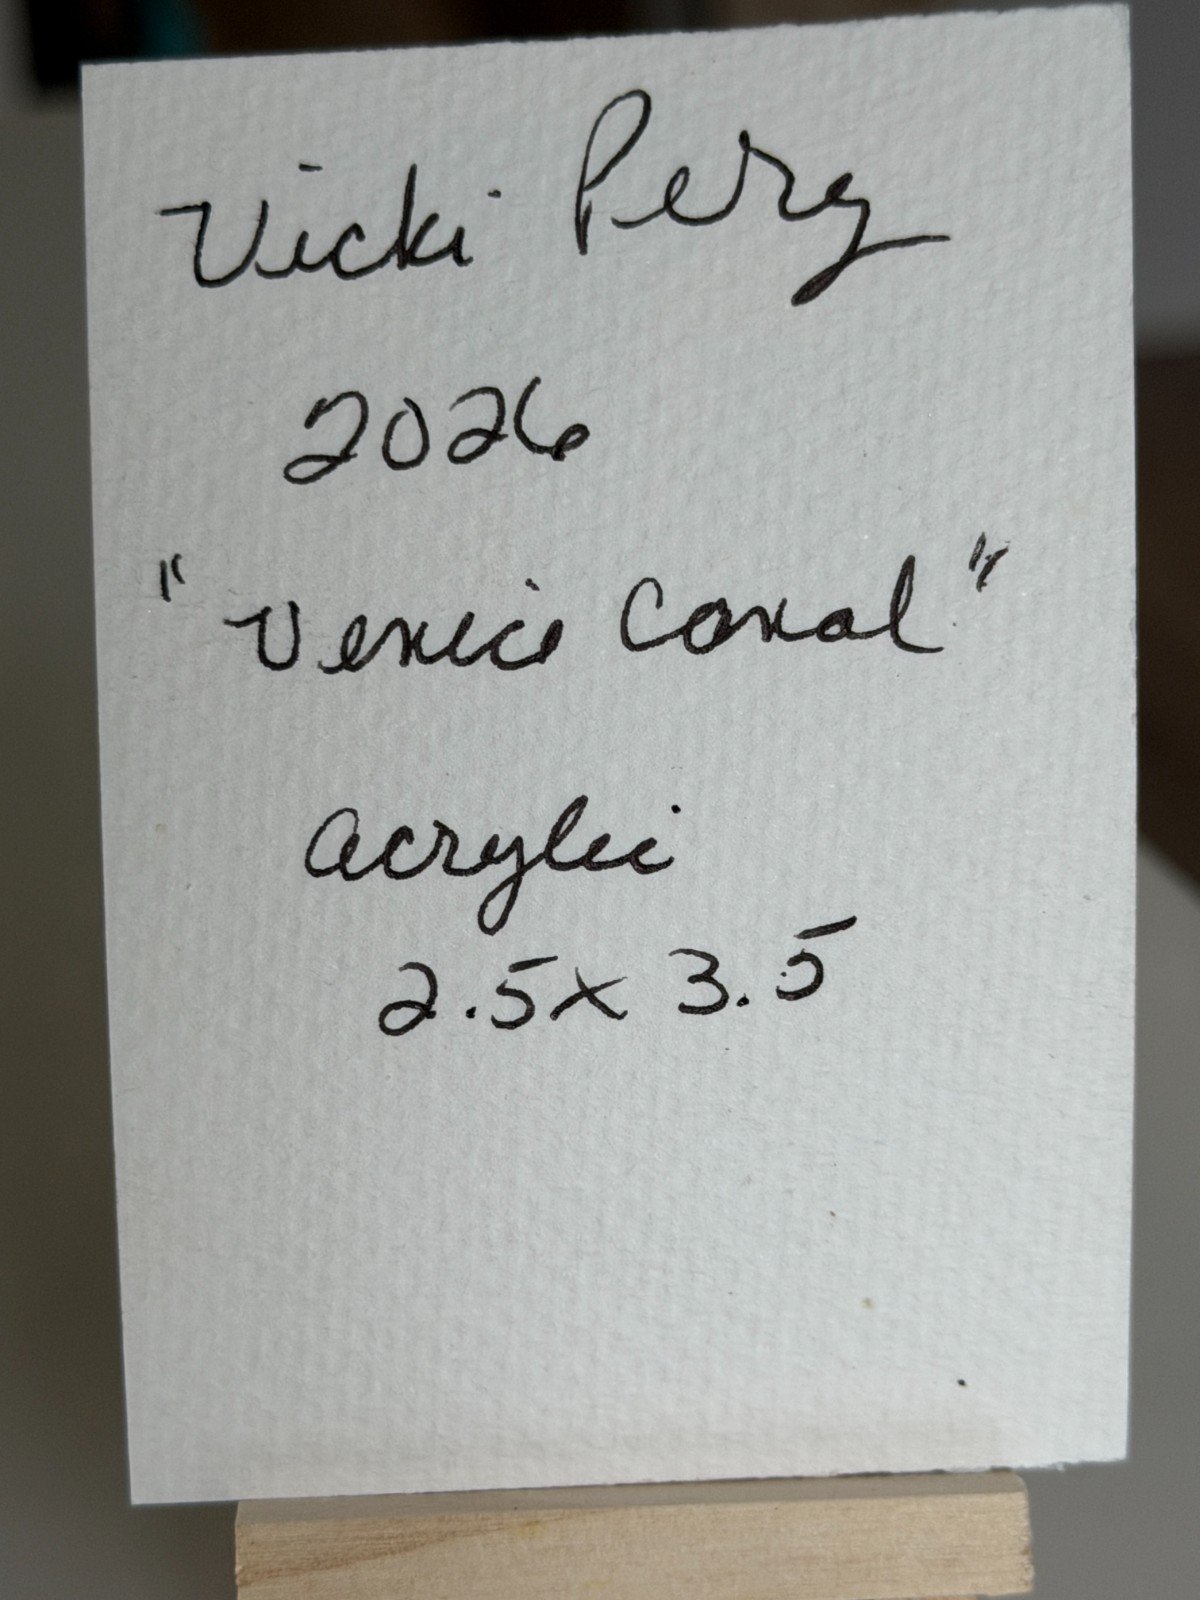 Vicki Perz
2026
"Venice Canal"
acrylic
2.5x 3.5